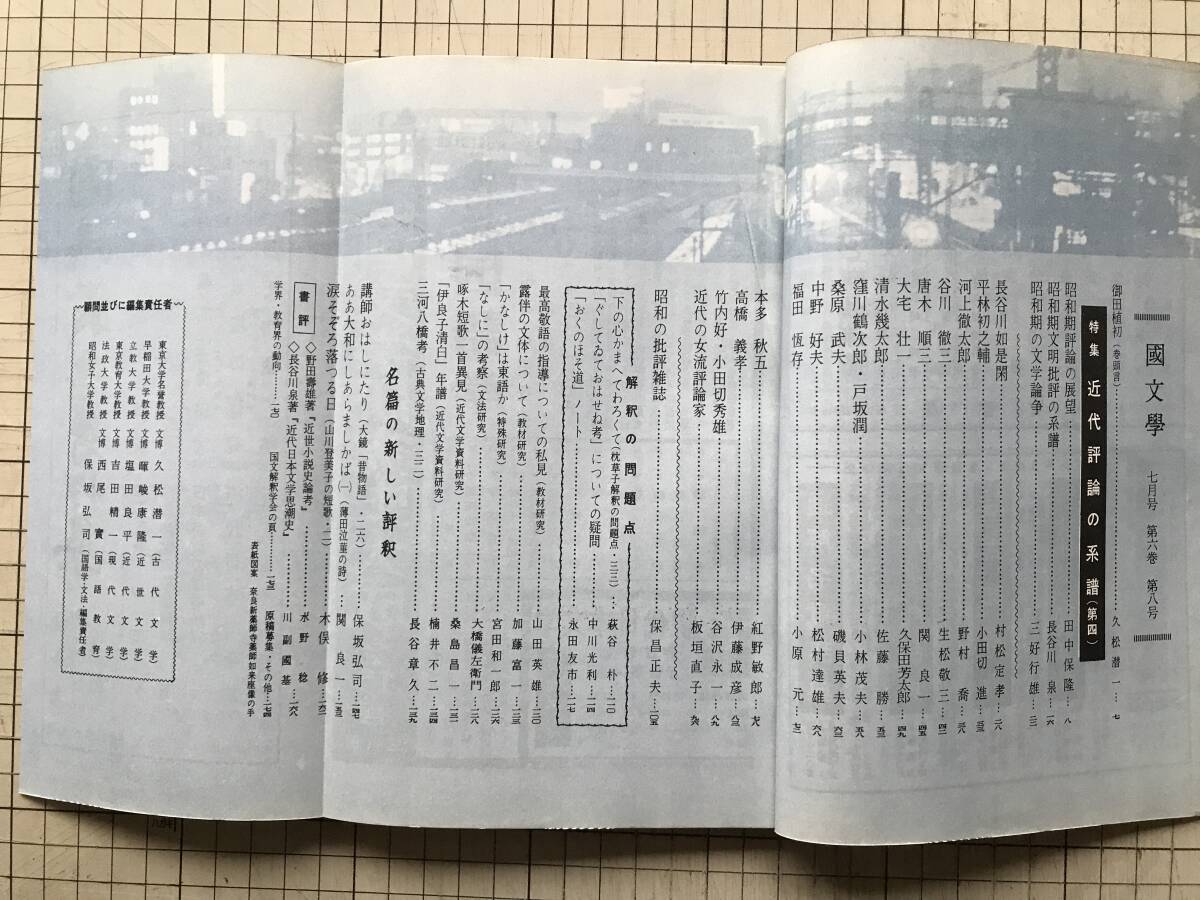 國文學 七月号 第六巻 第八号
御田植初（巻頭言）……久松潜一…七
特集 近代評論の系譜（第四）
昭和期評論の展望……田中保隆…八
昭和期文明批評の系譜……長谷川泉…一六
昭和期の文学論争……三好行雄…二三
長谷川如是閑……村松定孝…二八
平林初之輔……小田切進…三三
河上徹太郎……野村喬…三九
谷川徹三……生松敬三…四二
唐木順三……関良一…四五
大宅壮一……久保田芳太郎…四九
清水幾太郎……佐藤勝…五三
窪川鶴次郎・戸坂潤……小林茂夫…五九
桑原武夫……磯貝英夫…六三
中野好夫……松村達雄…六八
福田恆存……小原元…七三
本多秋五……紅野敏郎…七八
高橋義孝……伊藤成彦…八三
竹内好・小田切秀雄……谷沢永一…八九
近代の女流評論家……板垣直子…九六
昭和の批評雑誌……保昌正夫…一〇五
解釈の問題点
下の心かまへてわろくて（枕草子解釈の問題点・三三）…萩谷朴…一一〇
「ぐしてゐておはせね考」についての疑問……中川光利…一一四
「おくのほそ道」ノート……永田友市…一一七
最高敬語の指導についての私見（教材研究）……山田英雄…一二〇
露伴の文体について（教材研究）……加藤富一…一二三
「かなしけ」は東語か（特殊研究）……宮田和一郎…一二五
「なしに」の考察（文法研究）……大橋儀左衛門…一二八
啄木短歌一首異見（近代文学資料研究）……桑島昌一…一三一
「伊良子清白」年譜（近代文学資料研究）……楠井不二…一三四
三河八橋考（古典文学地理・三二）……長谷章久…一三九
名篇の新しい評釈
講師おはしにたり（大鏡「昔物語」・二六）……保坂弘司…一四七
ああ大和にしあらましかば（一）（薄田泣菫の詩）…関良一…一五三
涙そぞろ落つる日（山川登美子の短歌・二）……木俣修…一六二
書評
◇野田壽雄著『近世小説史論考』……水野稔…一六六
◇長谷川泉著『近代日本文学思潮史』……川副國基…一六八
学界・教育界の動向……一七一
国文解釈学会の頁……一七三
原稿募集・その他…一七四
表紙図案 奈良新薬師寺薬師如来座像の手
顧問並びに編集責任者
東京大学名誉教授 文博 久松潜一（古代文学）
早稲田大学教授 文博 暉峻康隆（近世文学）
立教大学教授 文博 塩田良平（近代文学）
東京教育大学教授 文博 吉田精一（現代文学）
法政大学教授 文博 西尾實（国語教育）
昭和女子大学教授 保坂弘司（国語学・文法・編集責任者）